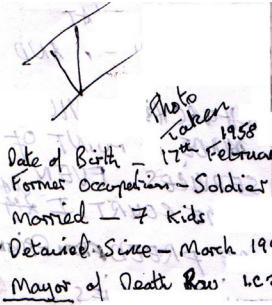 Photo
Taken
1958
Date of Birth - 17th Februar
Former Occupation - Soldier
Married - 7 Kids
Detained Since - March 199
Mayor of Death Row